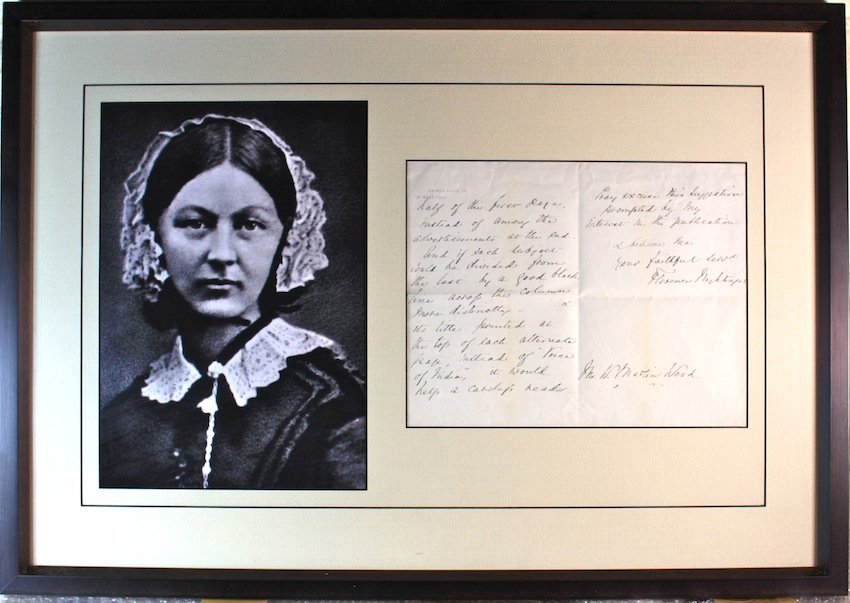 half of the first Page
instead of among the
advertisements at the end
And if each subject
could be divided from
the last by a good black
line across the column
more distinctly - &
its title printed at
the top of each alternate
page instead of "Voice
of India", it would
help a careless reader
Pray excuse this suggestion
prompted by my
interest in the publication
& believe me
your faithful serv<sup>t</sup>
Florence Nightingale
W. Martin Wood